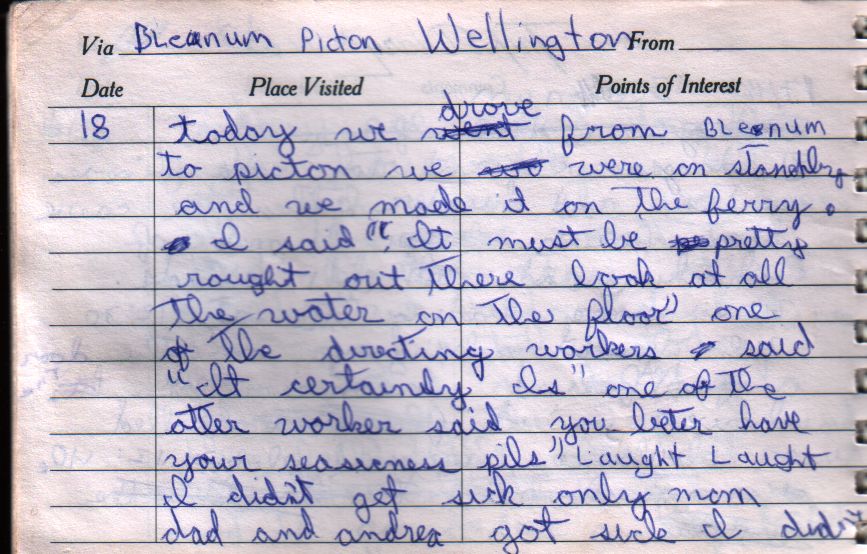 Via Bleanum Picton Wellington From
Date Place Visited Points of Interest
drove
18 today we went from Blenum
to picton we were on standby
and we made it on the ferry.
I said "It must be pretty
rought out there look at all
the water on the floor" one
of the directing workers said
"It certainly Is" one of the
otter worker said you beter have
your seasicness pils" Laught Laught
I didn't get sick only mom
dad and andrea got sick I didn't